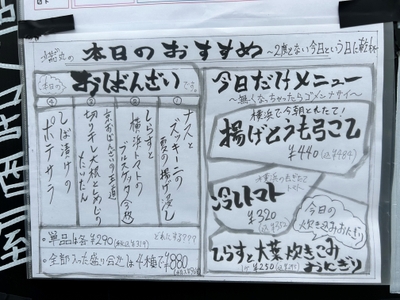 本日のおすすめ
～2度とない今日という日に乾杯～
本日の
おばんざい
です。
① ナスとズッキーニの
夏の揚げ浸し
② しらすと
横浜トマトの
ブルスケッタ(冷)
③ 京おばんざいの王道
切り干し大根としめじの
たいたん
④ しば漬けの
ポテサラ
・単品は各¥290
どれにする???
・全部入った盛り合せは4種で¥880
今日だけメニュー
～無くなっちゃったらゴメンナサイ～
横浜で今朝とれた!
揚げとうもろこし
¥440 (込¥484)
冷しトマト
¥320
今日の
炊き込みおにぎり
しらすと大葉炊きこみ
おにぎり
¥230